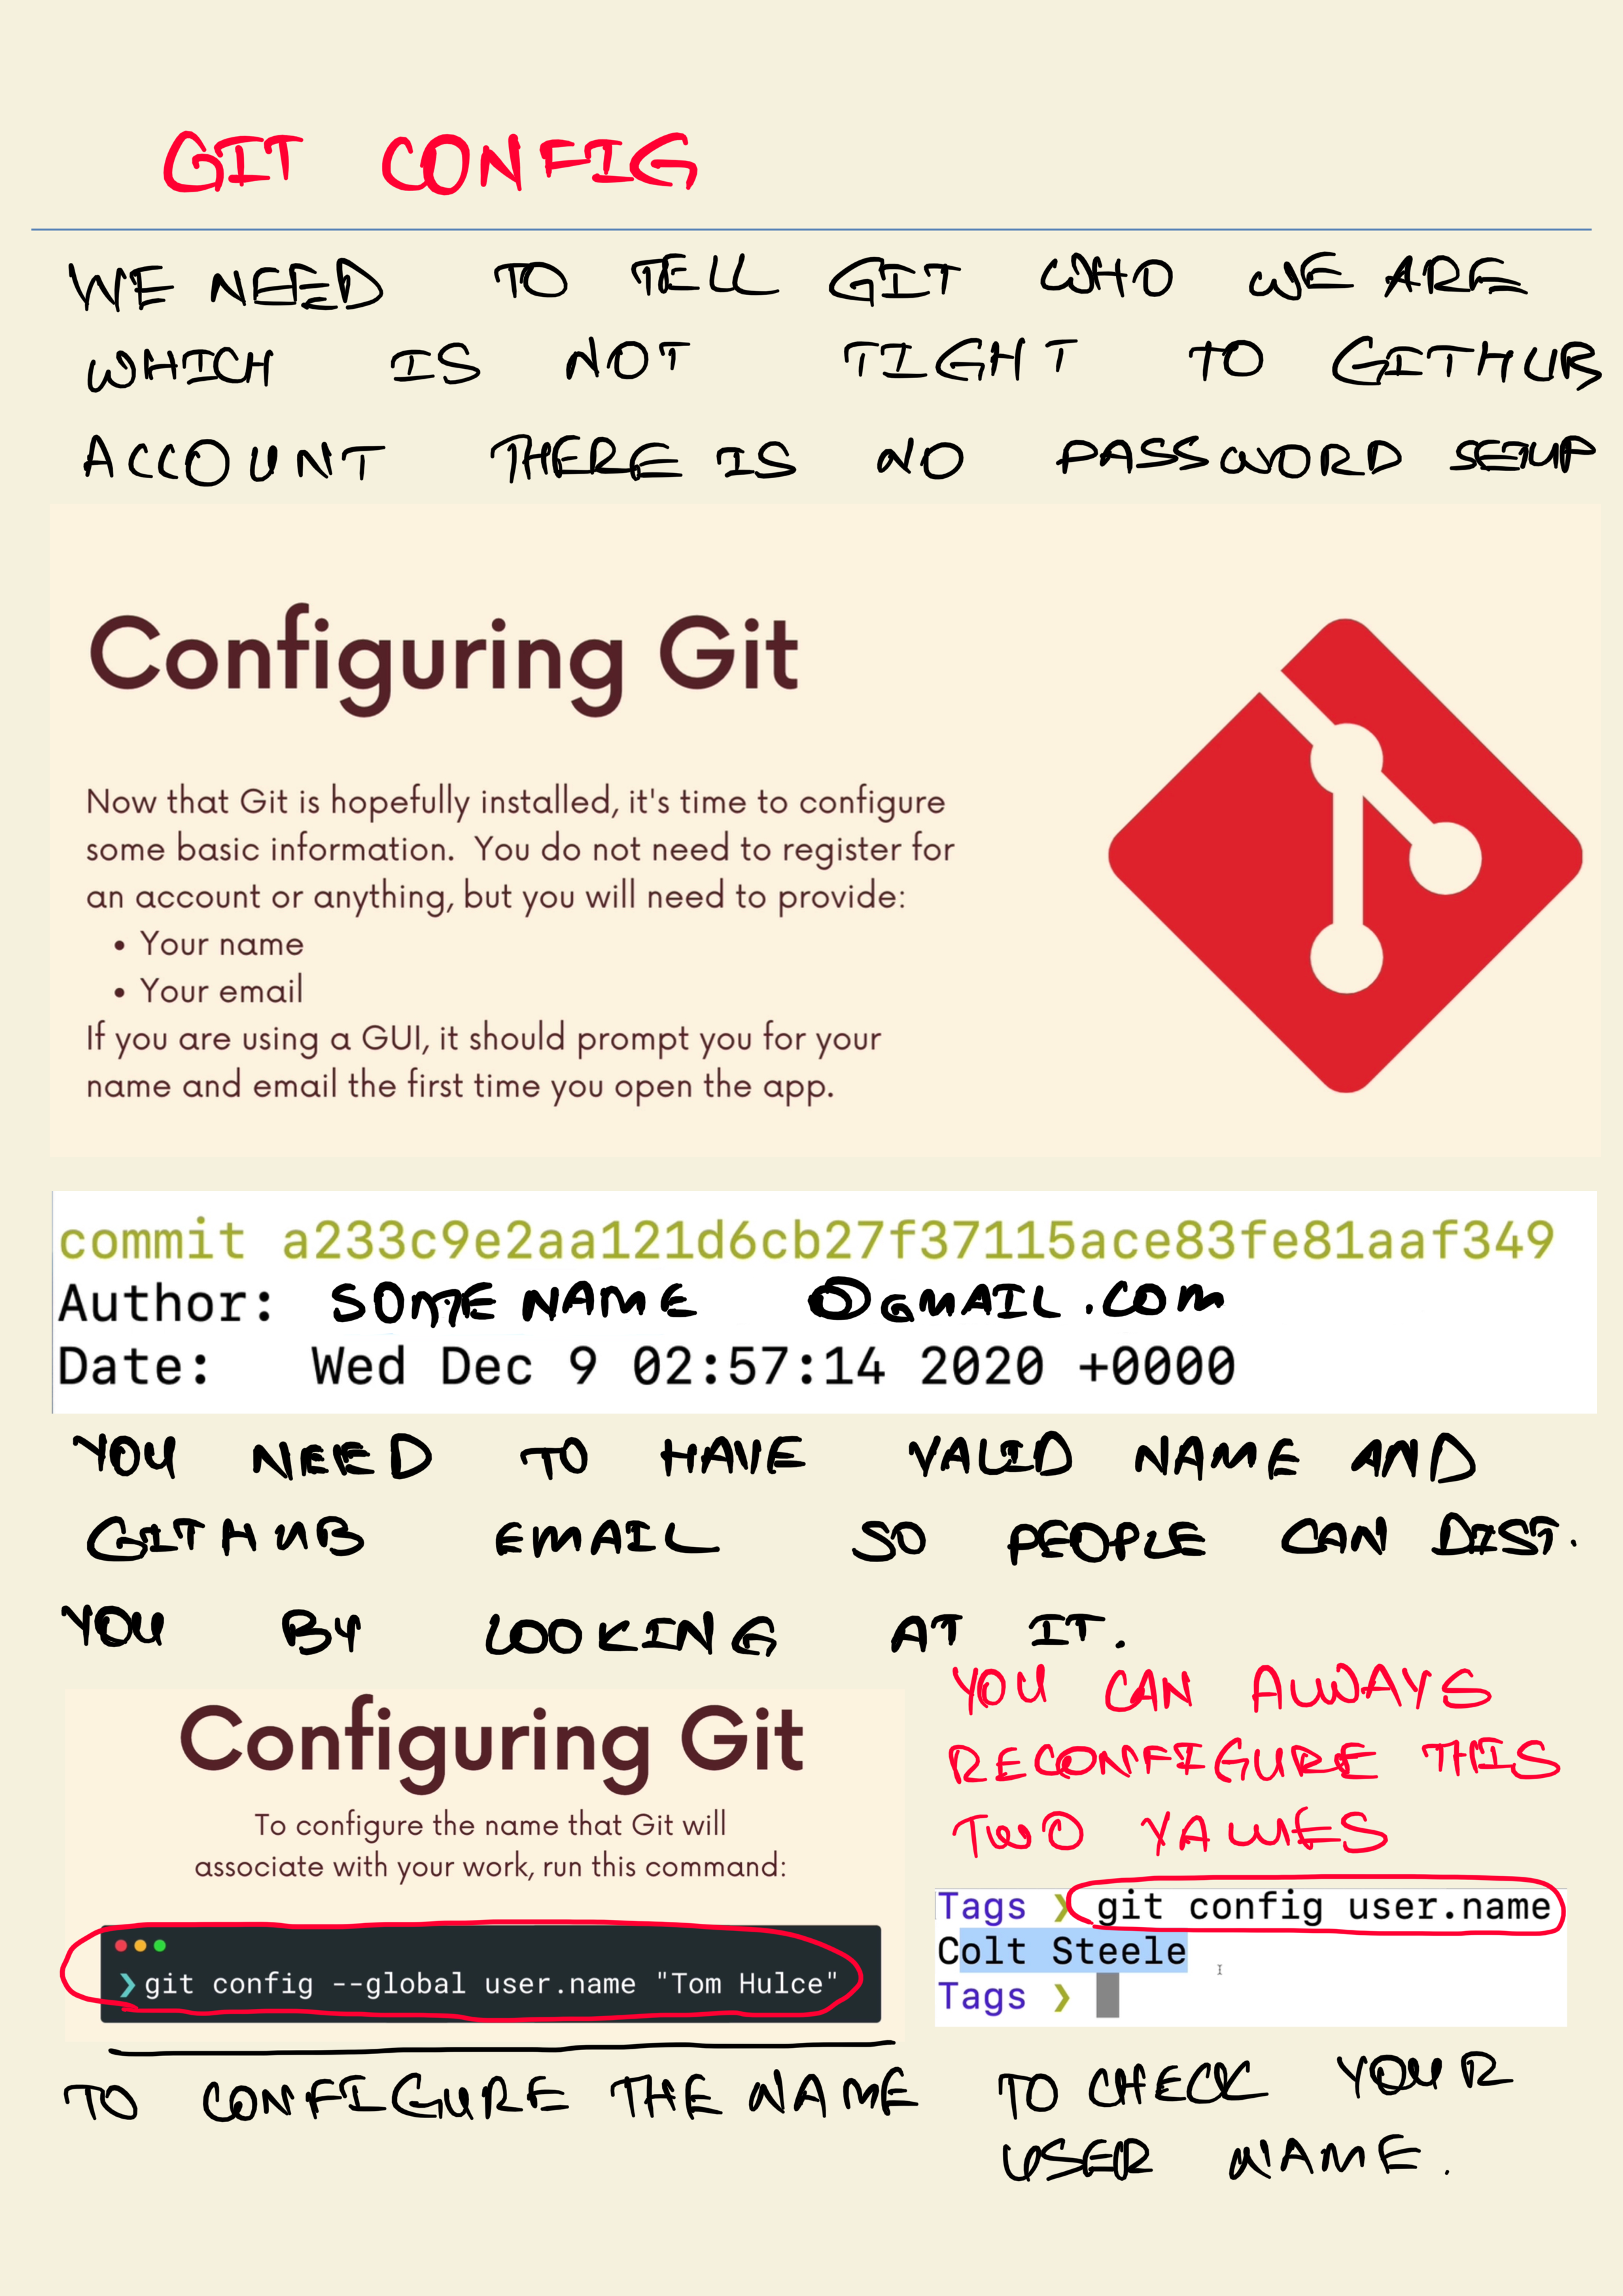 GIT CONFIG
WE NEED TO TELL GIT WHO WE ARE
WHICH IS NOT TIGHT TO GITHUB
ACCOUNT THERE IS NO PASSWORD SETUP
Configuring Git
Now that Git is hopefully installed, it's time to configure
some basic information. You do not need to register for
an account or anything, but you will need to provide:
• Your name
• Your email
If you are using a GUI, it should prompt you for your
name and email the first time you open the app.
commit a233c9e2aa121d6cb27f37115ace83fe81aaf349
Author: SOME NAME @GMAIL.COM
Date: Wed Dec 9 02:57:14 2020 +0000
YOU NEED TO HAVE VALID NAME AND
GITHUB EMAIL SO PEOPLE CAN DIST.
YOU BY LOOKING AT IT.
Configuring Git
To configure the name that Git will
associate with your work, run this command:
❯ git config --global user.name "Tom Hulce"
TO CONFIGURE THE NAME
YOU CAN ALWAYS
RECONFIGURE THIS
TWO VALUES
Tags ❯ git config user.name
Colt Steele
Tags ❯
TO CHECK YOUR
USER NAME.